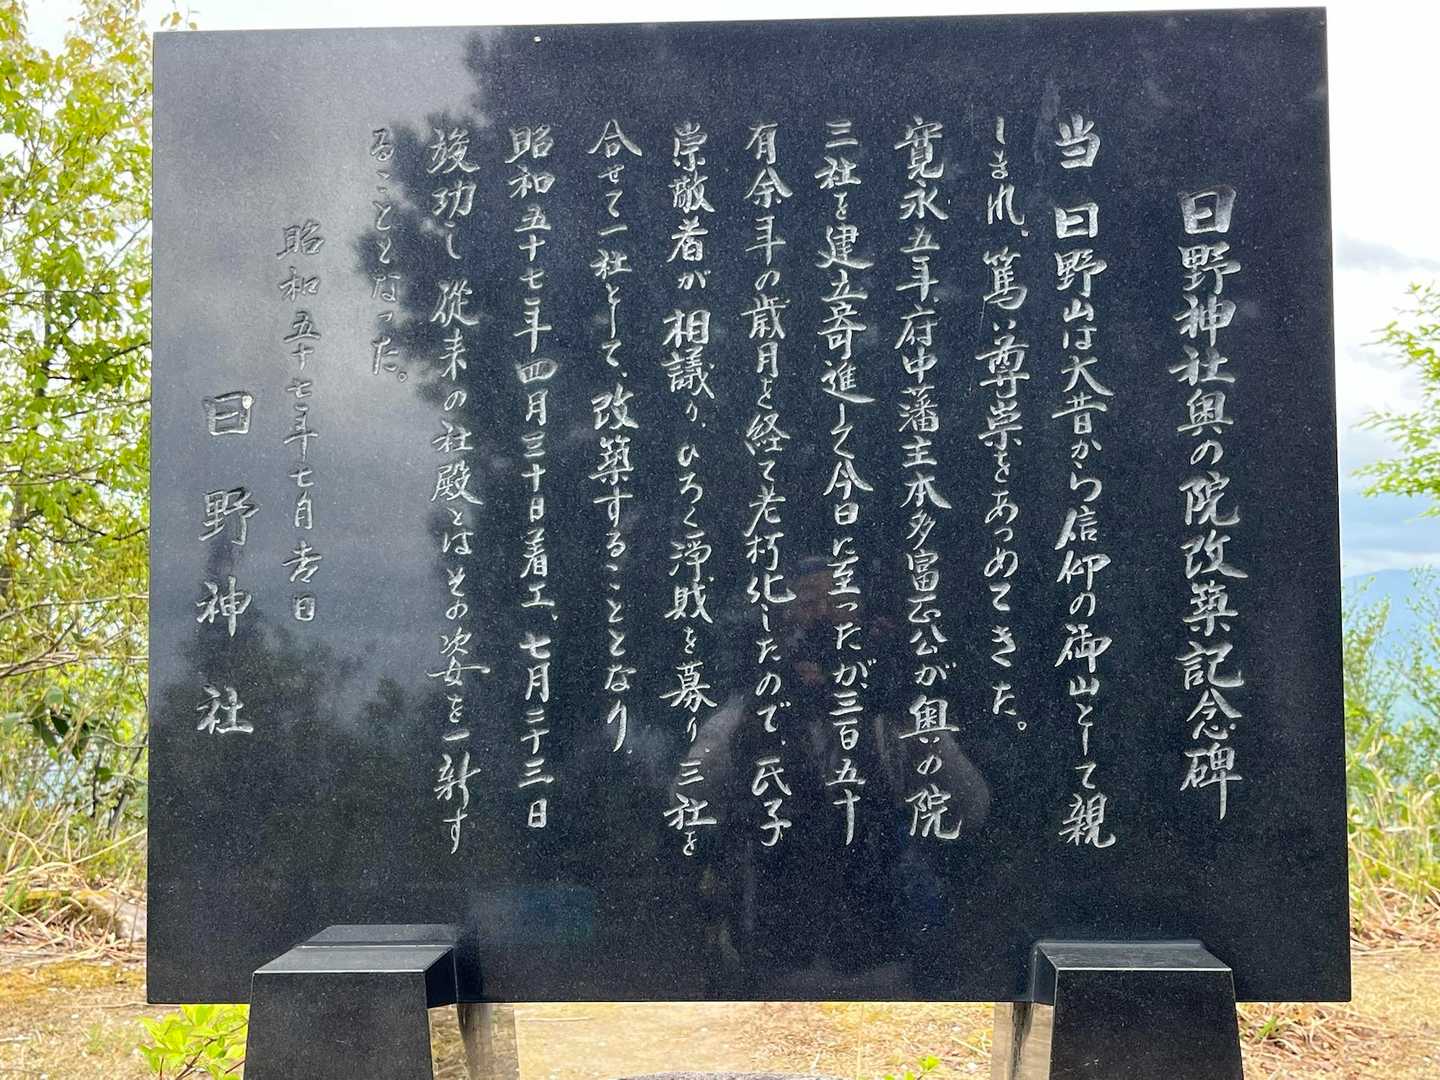 日野神社奥の院改築記念碑
当日野山は大昔から信仰の御山として親
しまれ、篤い尊崇をあつめてきた。
寛永五年、府中藩主本多富正公が奥の院
三社を建立寄進して今日に至ったが、三百五十
有余年の歳月を経て老朽化したので、氏子
崇敬者が相議り、ひろく浄財を募り、三社を
合せて一社として、改築することとなり
昭和五十七年四月三十日着工、七月二十三日
竣功し従来の社殿とはその姿を一新す
ることとなった。
昭和五十七年七月吉日
日野神社